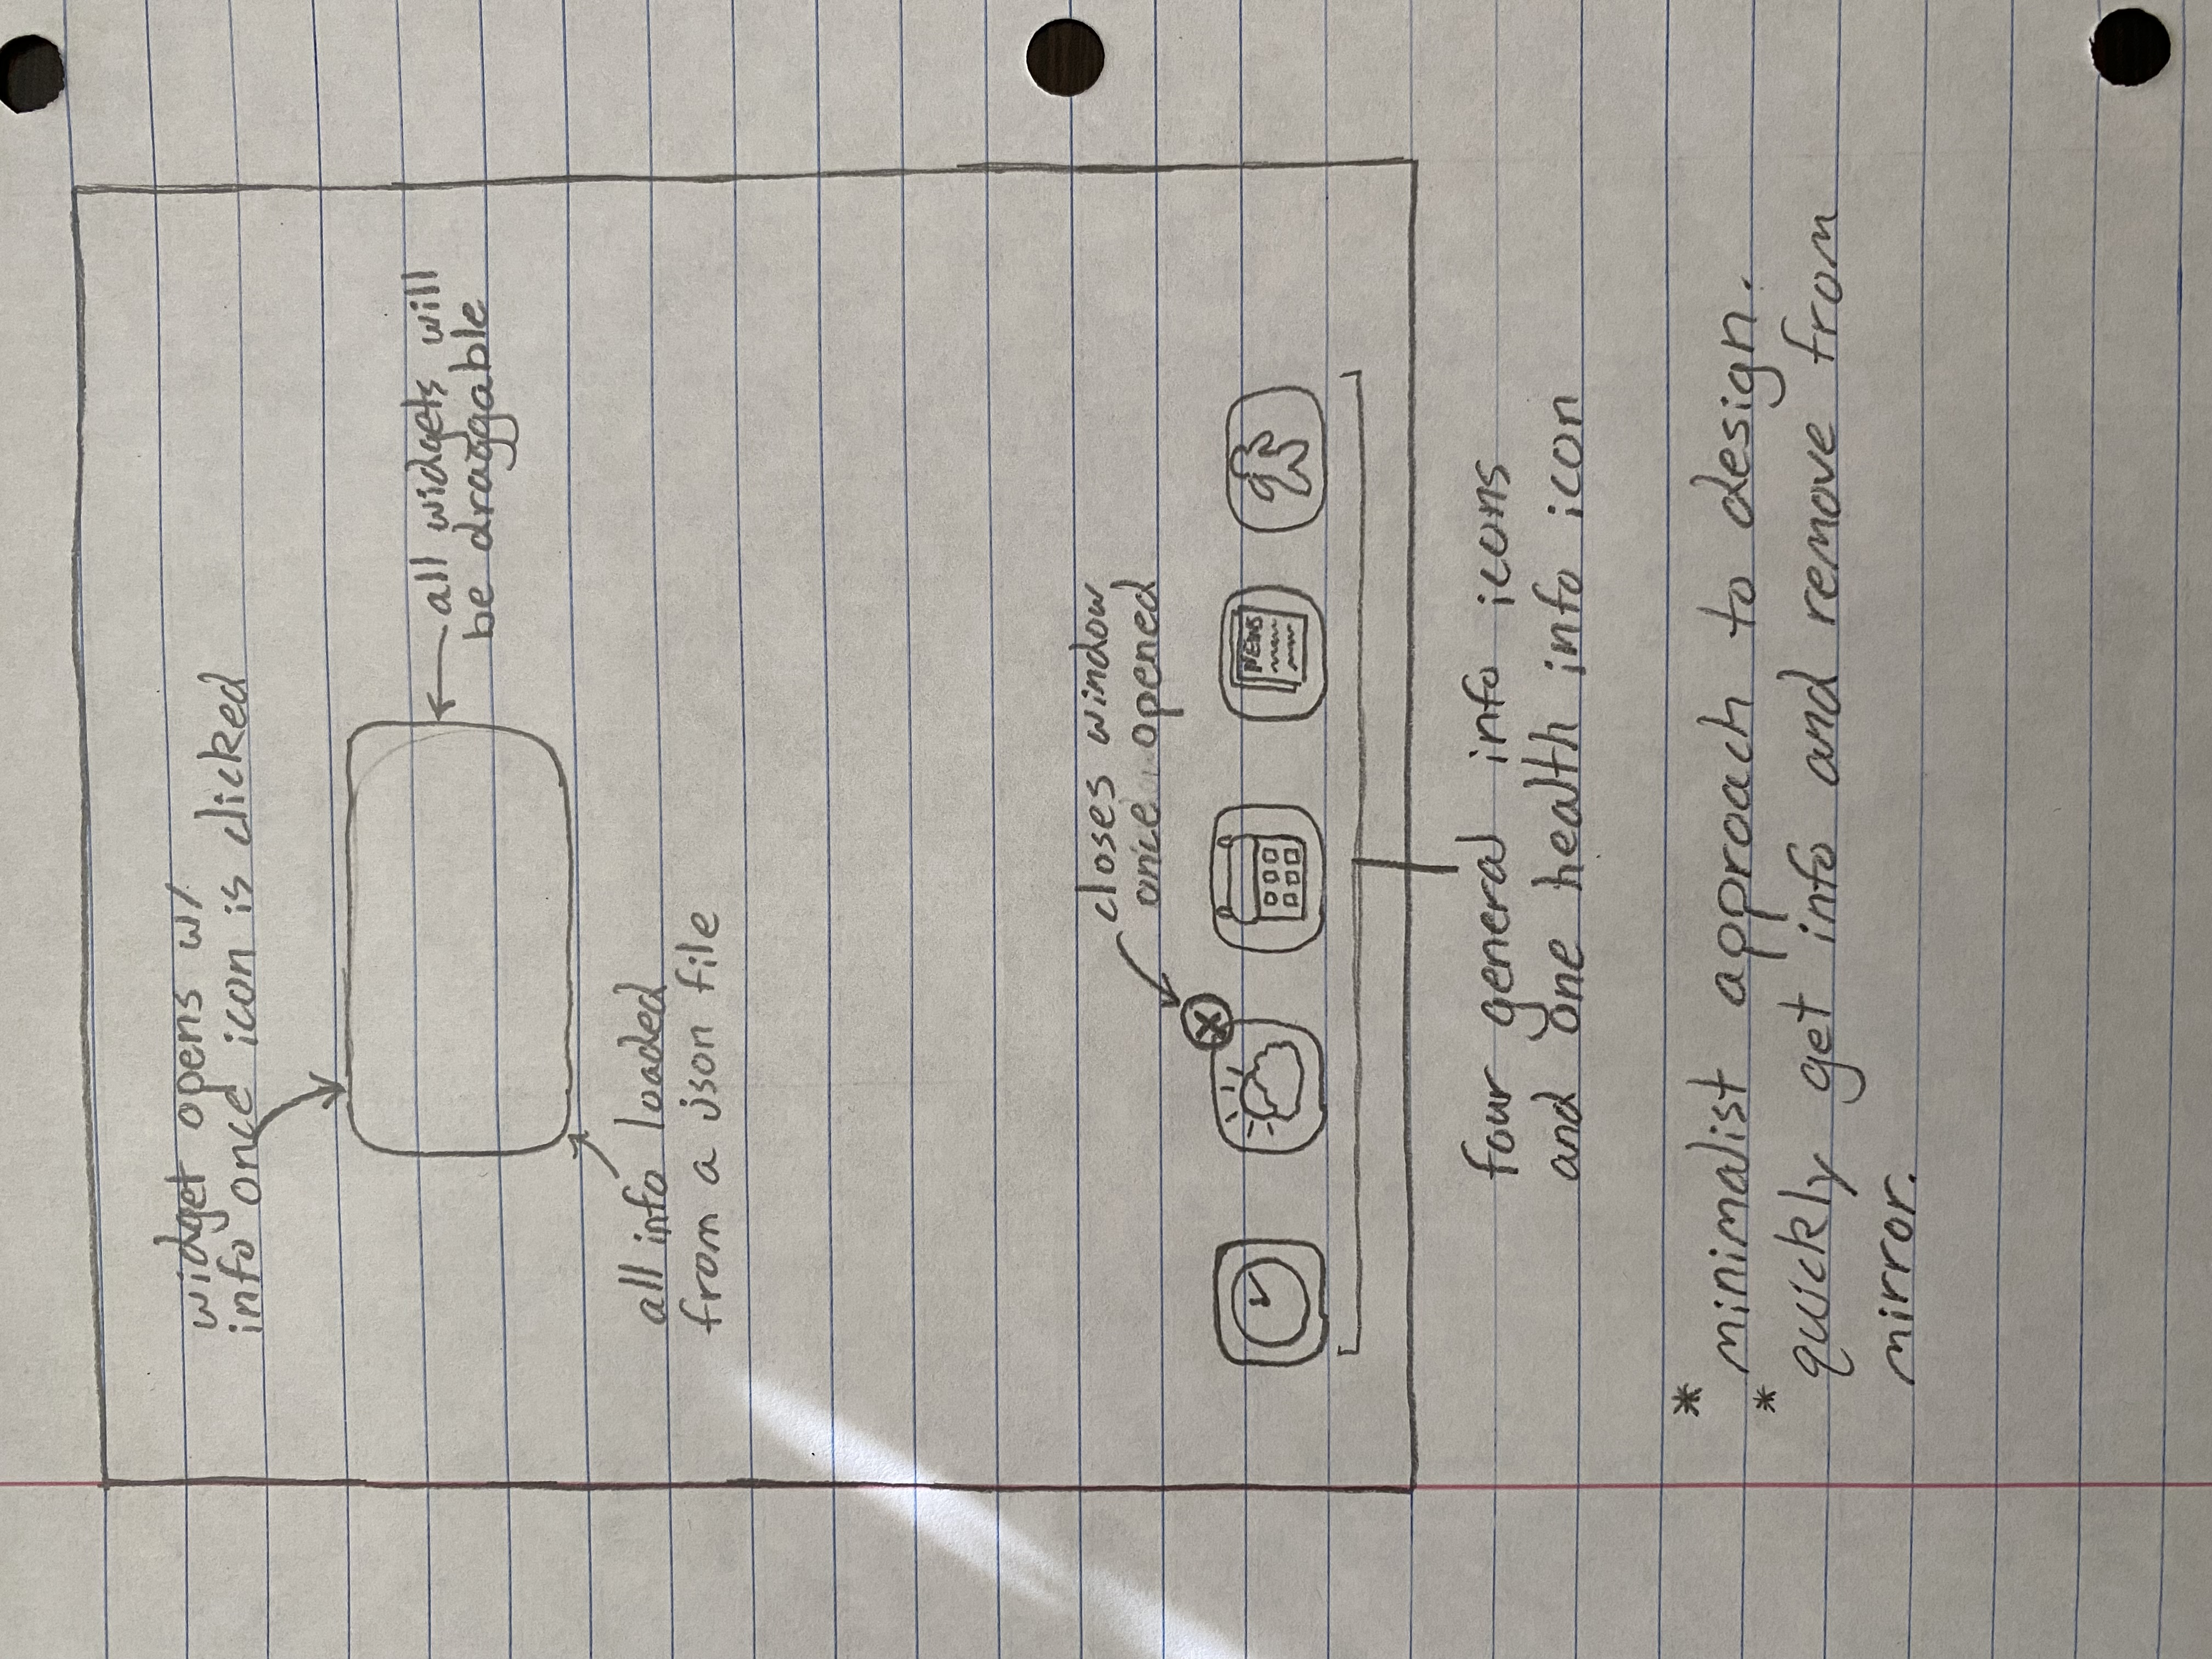 widget opens w/
info once icon is clicked
all widgets will
be draggable
all info loaded
from a json file
closes window
once opened
NEWS
four general info icons
and one health info icon
* minimalist approach to design.
* quickly get info and remove from
mirror.